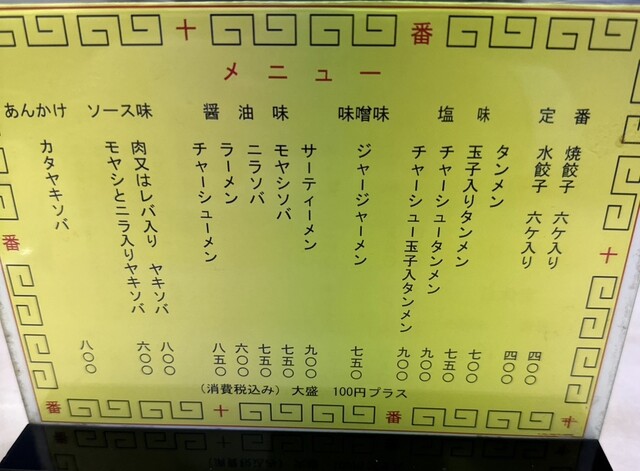 十 番
メニュー
定番
焼餃子 六ケ入り 四〇〇
水餃子 六ケ入り 四〇〇
塩味
タンメン 七〇〇
玉子入りタンメン 七五〇
チャーシュータンメン 九〇〇
チャーシュー玉子入タンメン 九〇〇
味噌味
ジャージャーメン 七五〇
醤油味
サーティーメン 九〇〇
モヤシソバ 七五〇
ニラソバ 七五〇
ラーメン 六〇〇
チャーシューメン 八五〇
ソース味
肉又はレバ入り ヤキソバ 八〇〇
モヤシとニラ入りヤキソバ 六〇〇
あんかけ
カタヤキソバ 八〇〇
(消費税込み) 大盛 100円プラス
番
十
番 十 番 十